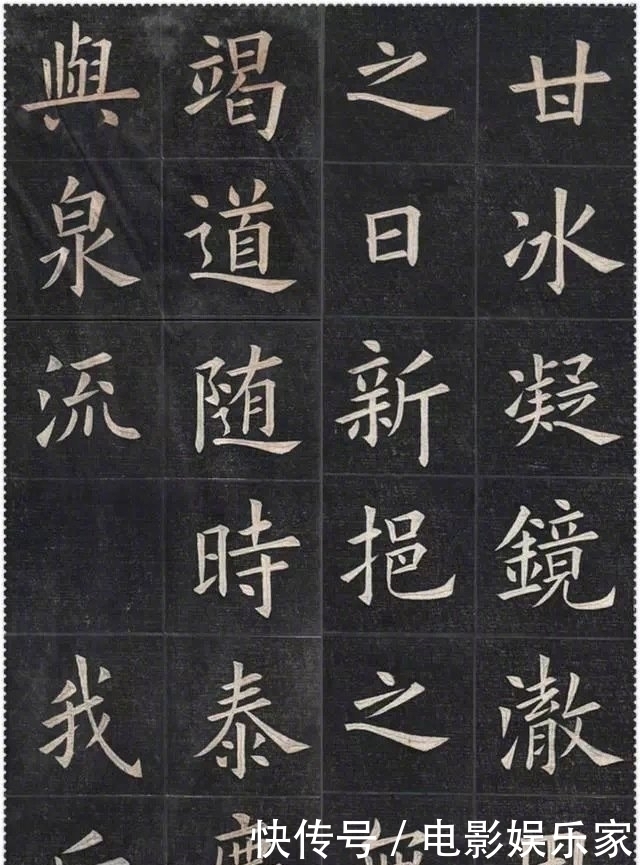 甘冰凝鏡澈
之日新挹之
竭道随時泰
與泉流 我
快传号 / 电影娱乐家